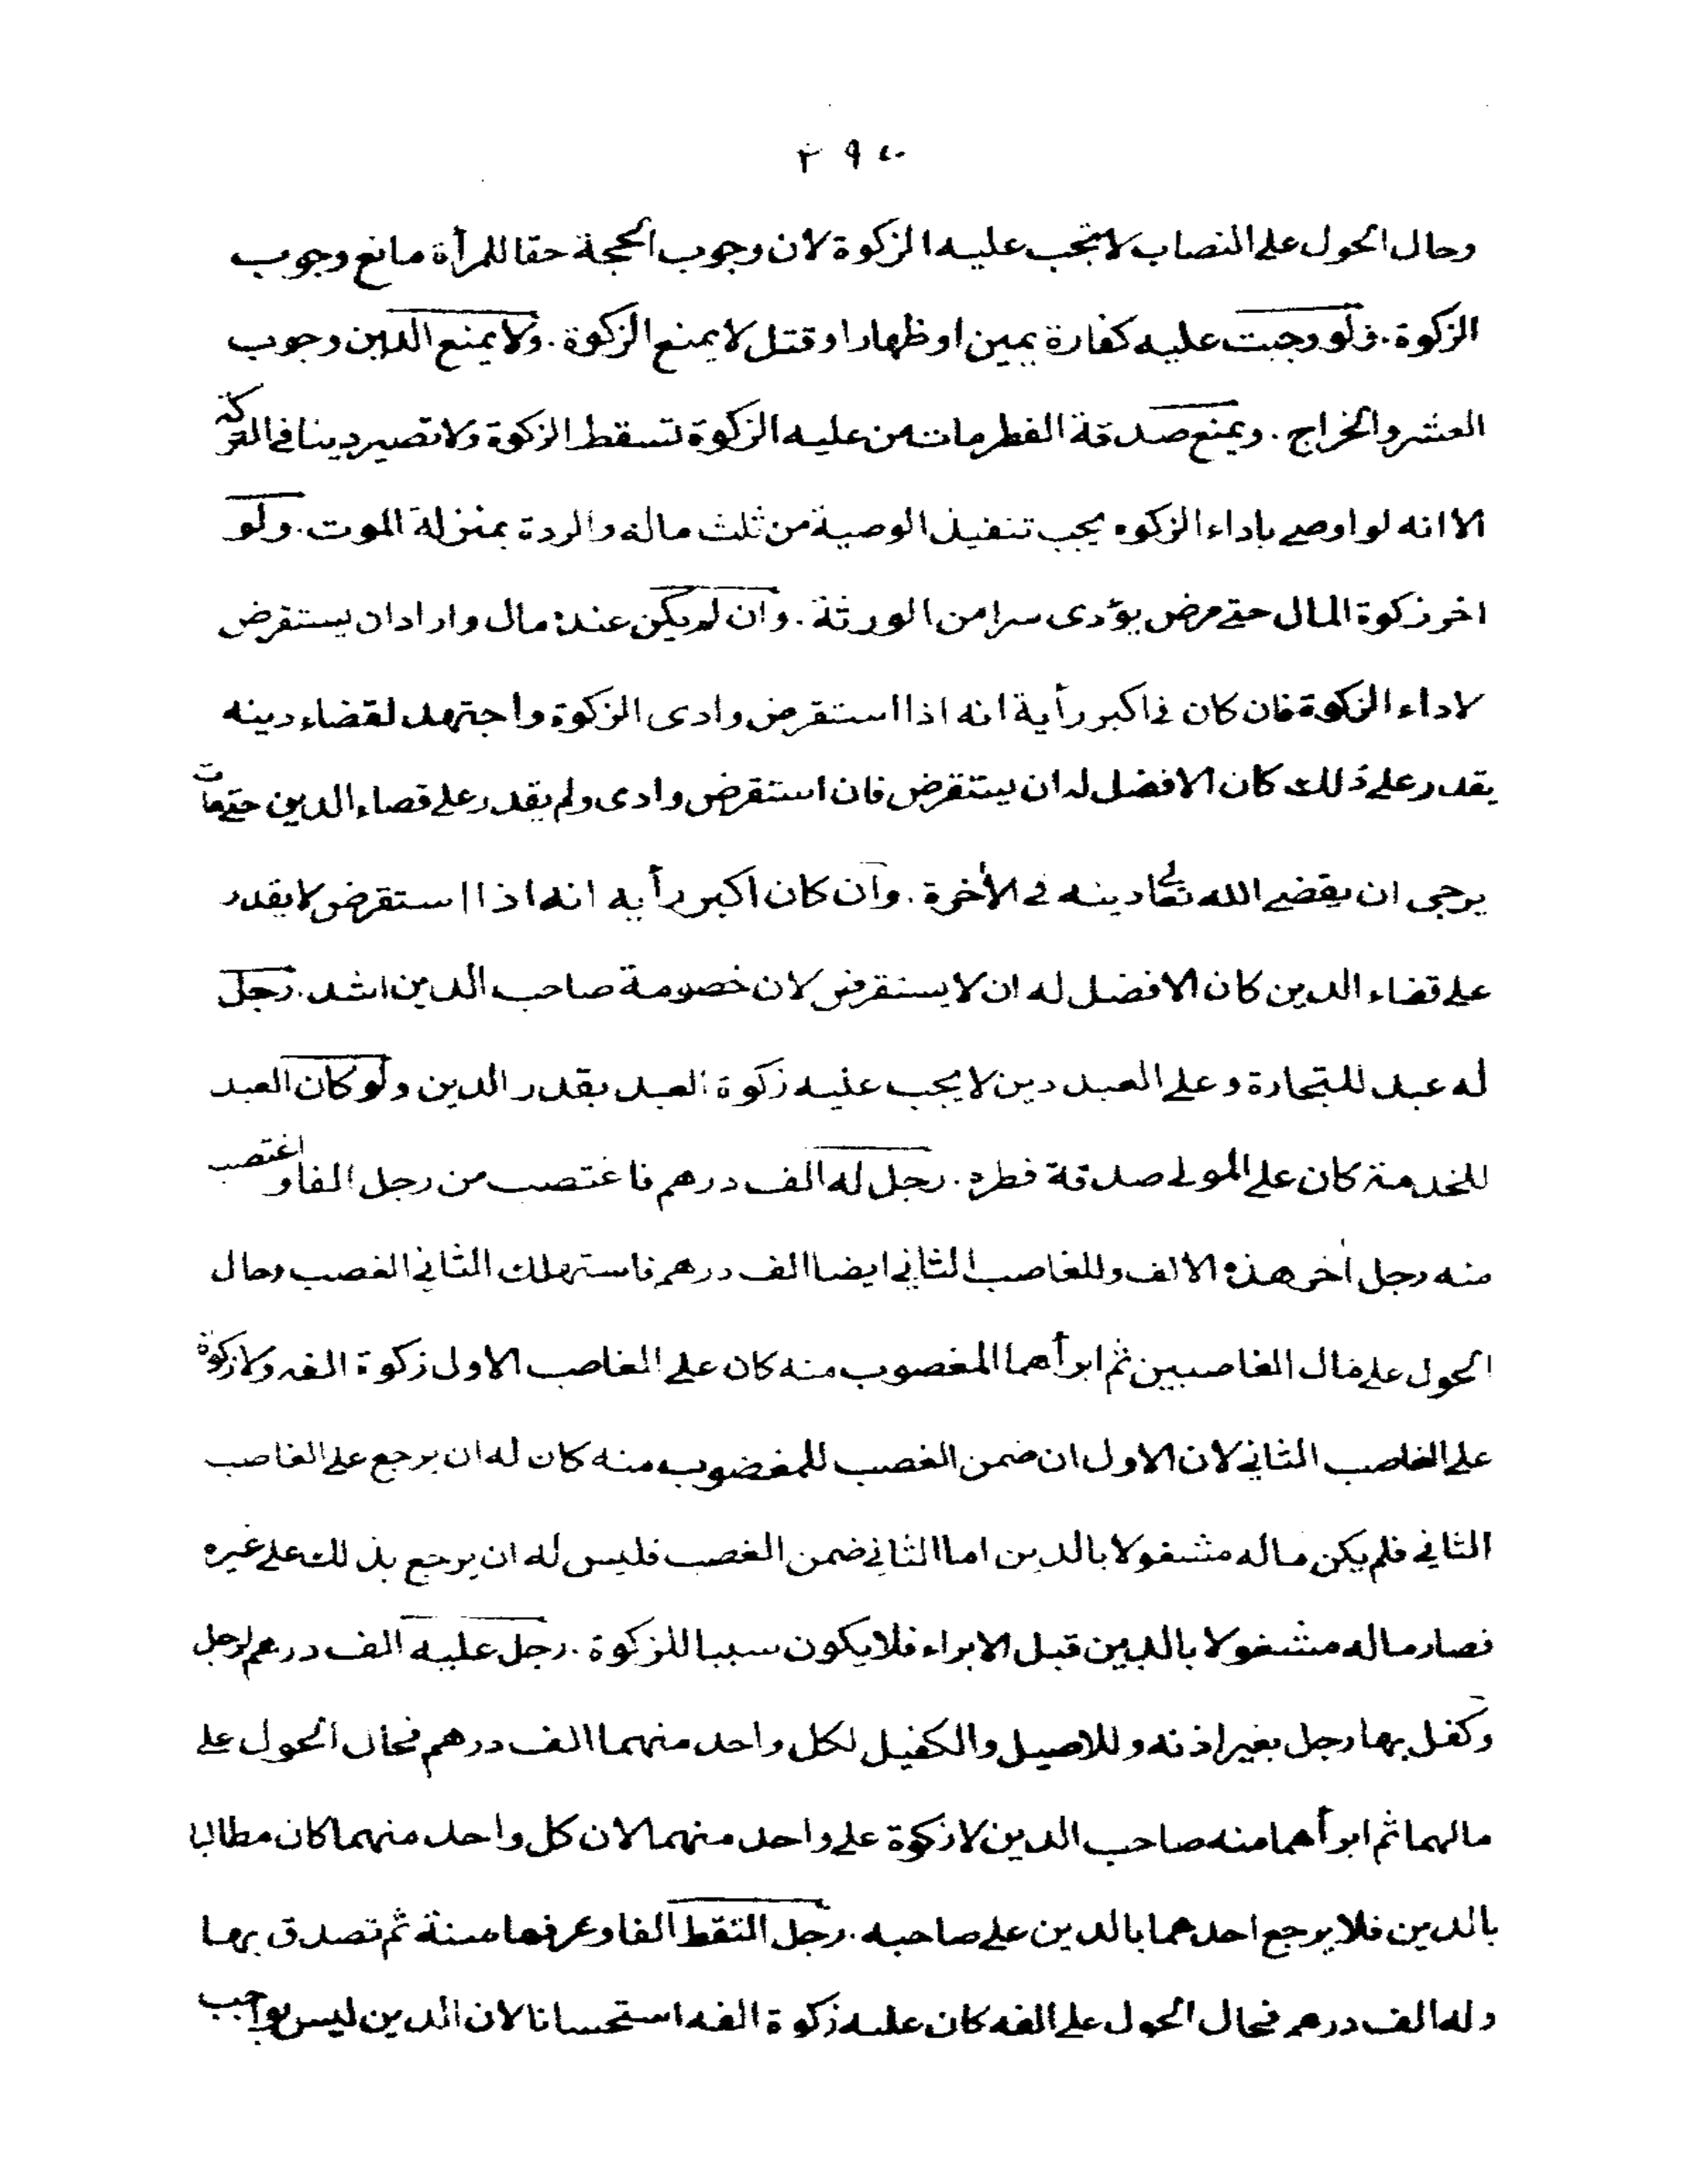 ٢٩٤
وحال الحول على النصاب لا تجب عليه الزكوة لان وجوب الحجة حقا للمرأة مانع وجوب
الزكوة. ولو وجبت عليه كفارة يمين او ظهار او قتل لا يمنع الزكوة. ولا يمنع الدين وجوب
العشر والخراج. ويمنع صدقة الفطر مات من عليه الزكوة تسقط الزكوة ولا تصير دينا في التركة
الا انه لو اوصى باداء الزكوه يجب تنفيذ الوصية من ثلث ماله والردة بمنزلة الموت. ولو
اخر زكوة المال حتى مرض يؤدى سرا من الورثة. وان لم يكن عنده مال واراد ان يستقرض
لاداء الزكوة فان كان في اكبر رأية انه اذا استقرض وادى الزكوة واجتهد لقضاء دينه
يقدر على ذلك كان الافضل له ان يستقرض فان استقرض وادى ولم يقدر على قضاء الدين حتى مات
يرجى ان يقضى الله تعالى دينه في الأخرة. وان كان اكبر رأيه انه اذا استقرض لا يقدر
على قضاء الدين كان الافضل له ان لا يستقرض لان خصومة صاحب الدين اشد. رجل
له عبد للتجارة وعلى العبد دين لا يجب عليه زكوة العبد بقدر الدين ولو كان العبد
للخدمة كان على المولى صدقة فطره. رجل له الف درهم فاغتصب من رجل الفا واغتصب
منه رجل أخر هذه الالف وللغاصب الثاني ايضا الف درهم فاستهلك الثاني الغصب وحال
الحول على مال الغاصبين ثم ابرأهما المغصوب منه كان على الغاصب الاول زكوة الفه ولا زكوة
على الغاصب الثاني لان الاول ان ضمن الغصب للمغضوب منه كان له ان يرجع على الغاصب
الثاني فلم يكن ماله مشغولا بالدين اما الثاني ضمن الغصب فليس له ان يرجع بذلك على غيره
فصار ماله مشغولا بالدين قبل الابراء فلا يكون سببا للزكوة. رجل عليه الف درهم لرجل
وكفل بها رجل بغير اذنه وللاصيل والكفيل لكل واحد منهما الف درهم فحال الحول على
مالهما ثم ابرأهما منه صاحب الدين لا زكوة على واحد منهما لان كل واحد منهما كان مطالبا
بالدين فلا يرجع احدهما بالدين على صاحبه. رجل التقط الفا وعرفها سنة ثم تصدق بها
وله الف درهم فحال الحول على الفه كان عليه زكوة الفه استحسانا لان الدين ليس بواجب